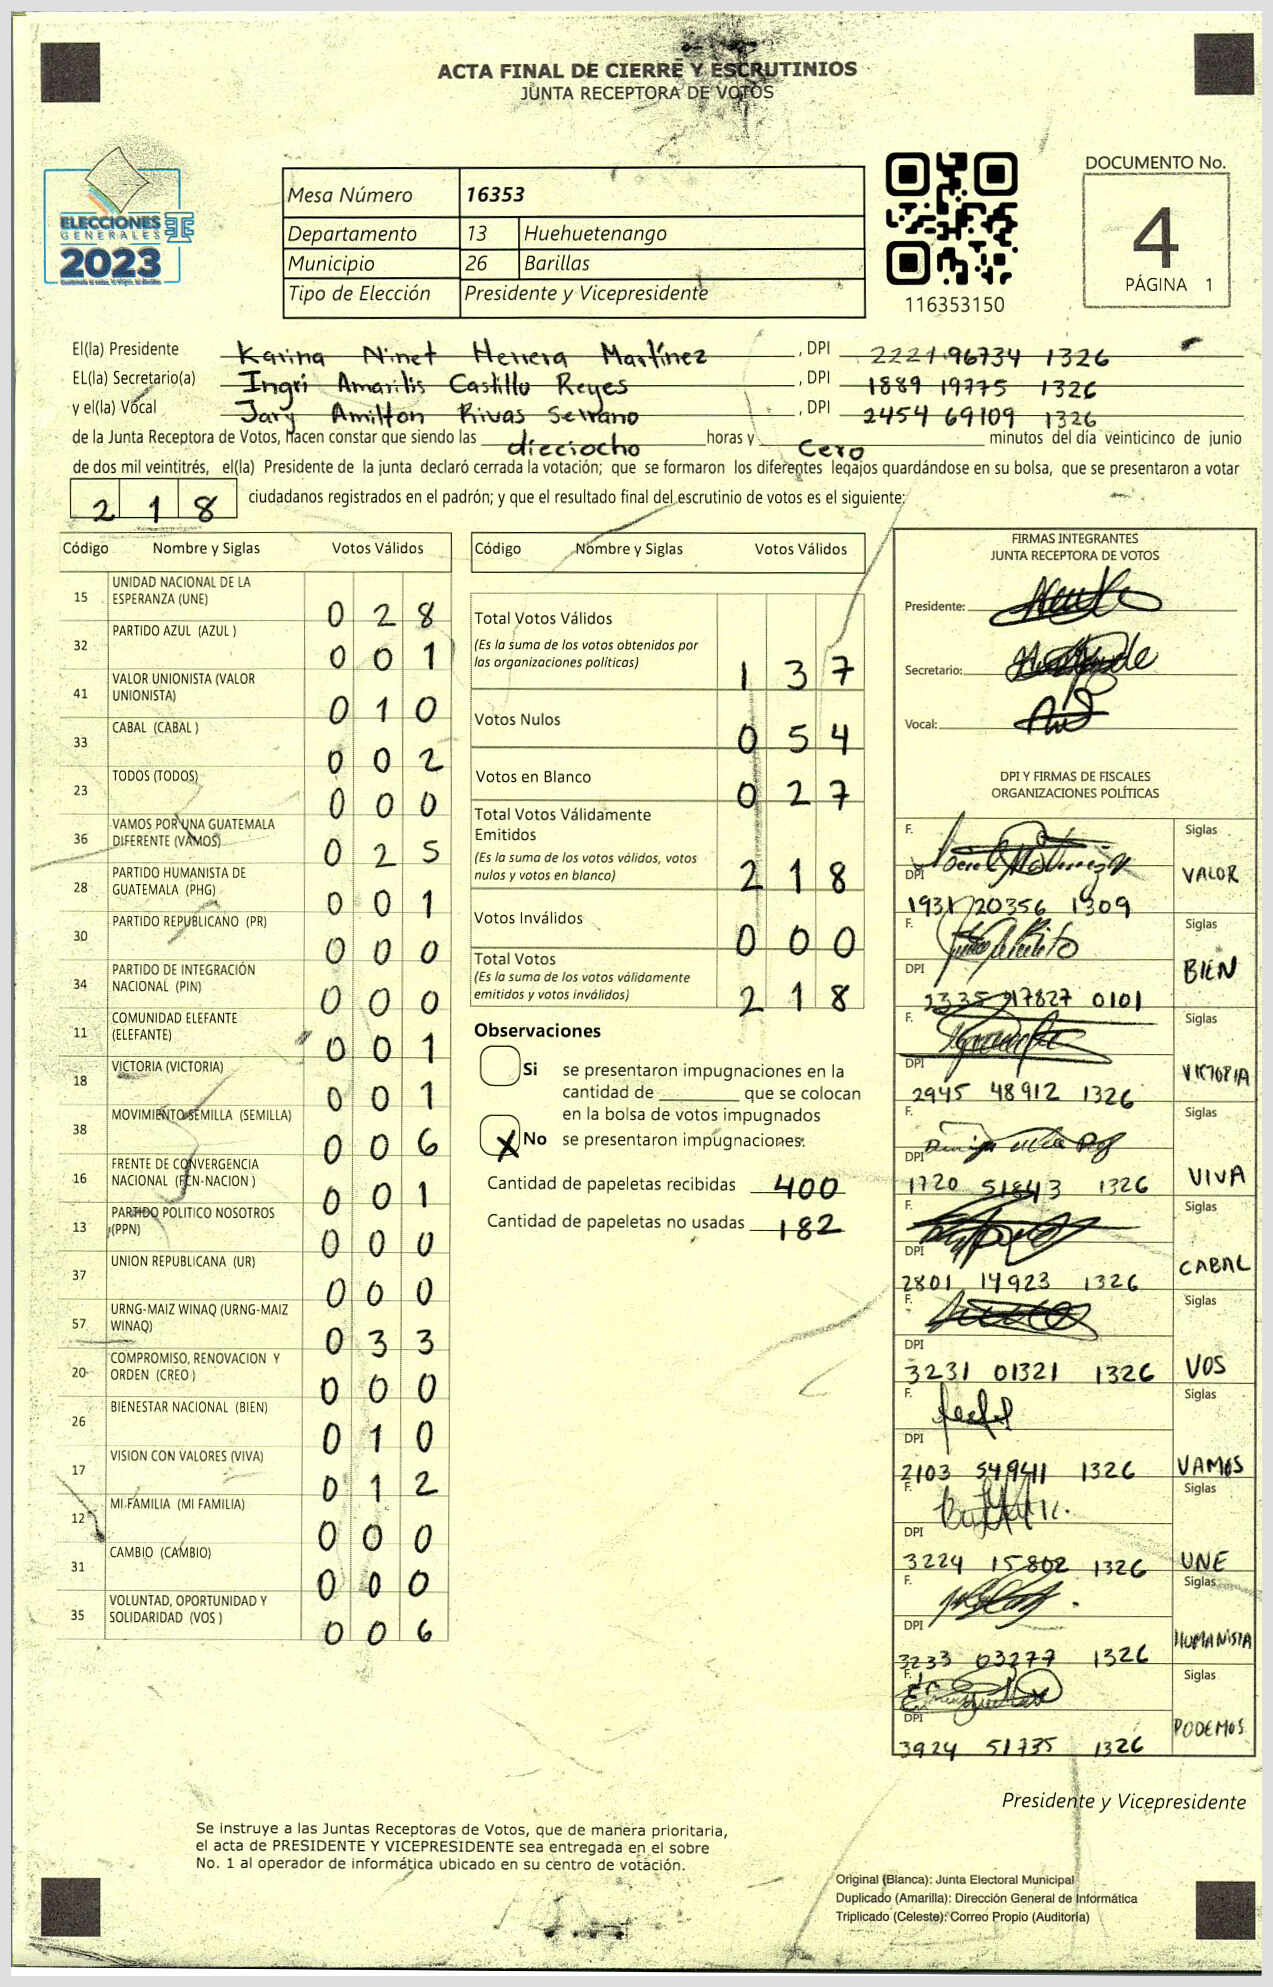 ACTA FINAL DE CIERRE Y ESCRUTINIOS
JUNTA RECEPTORA DE VOTOS
ELECCIONES
GENERALES
2023
Mesa Número 16353
Departamento 13 Huehuetenango
Municipio 26 Barillas
Tipo de Elección Presidente y Vicepresidente
116353150
DOCUMENTO No.
4
PÁGINA 1
El(la) Presidente Karina Ninet Herrera Martínez , DPI 2221 96734 1326
EL(la) Secretario(a) Ingri Amarilis Castillo Reyes , DPI 1889 19775 1326
y el(la) Vocal Jary Amilton Rivas Serrano , DPI 2454 69109 1326
de la Junta Receptora de Votos, hacen constar que siendo las dieciocho horas y Cero minutos del día veinticinco de junio
de dos mil veintitrés, el(la) Presidente de la junta declaró cerrada la votación; que se formaron los diferentes legajos guardándose en su bolsa, que se presentaron a votar
218 ciudadanos registrados en el padrón; y que el resultado final del escrutinio de votos es el siguiente:
Código Nombre y Siglas Votos Válidos
15 UNIDAD NACIONAL DE LA
ESPERANZA (UNE) 028
32 PARTIDO AZUL (AZUL ) 001
41 VALOR UNIONISTA (VALOR
UNIONISTA) 010
33 CABAL (CABAL ) 002
23 TODOS (TODOS) 000
36 VAMOS POR UNA GUATEMALA
DIFERENTE (VAMOS) 025
28 PARTIDO HUMANISTA DE
GUATEMALA (PHG) 001
30 PARTIDO REPUBLICANO (PR) 000
34 PARTIDO DE INTEGRACIÓN
NACIONAL (PIN) 000
11 COMUNIDAD ELEFANTE
(ELEFANTE) 001
18 VICTORIA (VICTORIA) 001
38 MOVIMIENTO SEMILLA (SEMILLA) 006
16 FRENTE DE CONVERGENCIA
NACIONAL (FCN-NACION ) 001
13 PARTIDO POLITICO NOSOTROS
(PPN) 000
37 UNION REPUBLICANA (UR) 000
57 URNG-MAIZ WINAQ (URNG-MAIZ
WINAQ) 033
20 COMPROMISO, RENOVACION Y
ORDEN (CREO ) 000
26 BIENESTAR NACIONAL (BIEN) 010
17 VISION CON VALORES (VIVA) 012
12 MI FAMILIA (MI FAMILIA) 000
31 CAMBIO (CAMBIO) 000
35 VOLUNTAD, OPORTUNIDAD Y
SOLIDARIDAD (VOS ) 006
Código Nombre y Siglas Votos Válidos
Total Votos Válidos
(Es la suma de los votos obtenidos por
las organizaciones políticas) 137
Votos Nulos 054
Votos en Blanco 027
Total Votos Válidamente
Emitidos
(Es la suma de los votos válidos, votos
nulos y votos en blanco) 218
Votos Inválidos 000
Total Votos
(Es la suma de los votos válidamente
emitidos y votos inválidos) 218
Observaciones
Si se presentaron impugnaciones en la
cantidad de ________ que se colocan
en la bolsa de votos impugnados
X No se presentaron impugnaciones.
Cantidad de papeletas recibidas 400
Cantidad de papeletas no usadas 182
FIRMAS INTEGRANTES
JUNTA RECEPTORA DE VOTOS
Presidente:
Secretario:
Vocal:
DPI Y FIRMAS DE FISCALES
ORGANIZACIONES POLÍTICAS
F. Siglas
DPI VALOR
1931 20356 1309
F. Siglas
DPI BIEN
2335 17827 0101
F. Siglas
DPI VICTORIA
2945 48912 1326
F. Siglas
DPI VIVA
1720 51843 1326
F. Siglas
DPI CABAL
2801 14923 1326
F. Siglas
DPI VOS
3231 01321 1326
F. Siglas
DPI VAMOS
2103 54941 1326
F. Siglas
DPI UNE
3224 15802 1326
F. Siglas
DPI HUMANISTA
3233 03277 1326
F. Siglas
DPI PODEMOS
3924 51735 1326
Presidente y Vicepresidente
Se instruye a las Juntas Receptoras de Votos, que de manera prioritaria,
el acta de PRESIDENTE Y VICEPRESIDENTE sea entregada en el sobre
No. 1 al operador de informática ubicado en su centro de votación.
Original (Blanca): Junta Electoral Municipal
Duplicado (Amarilla): Dirección General de Informática
Triplicado (Celeste): Correo Propio (Auditoría)